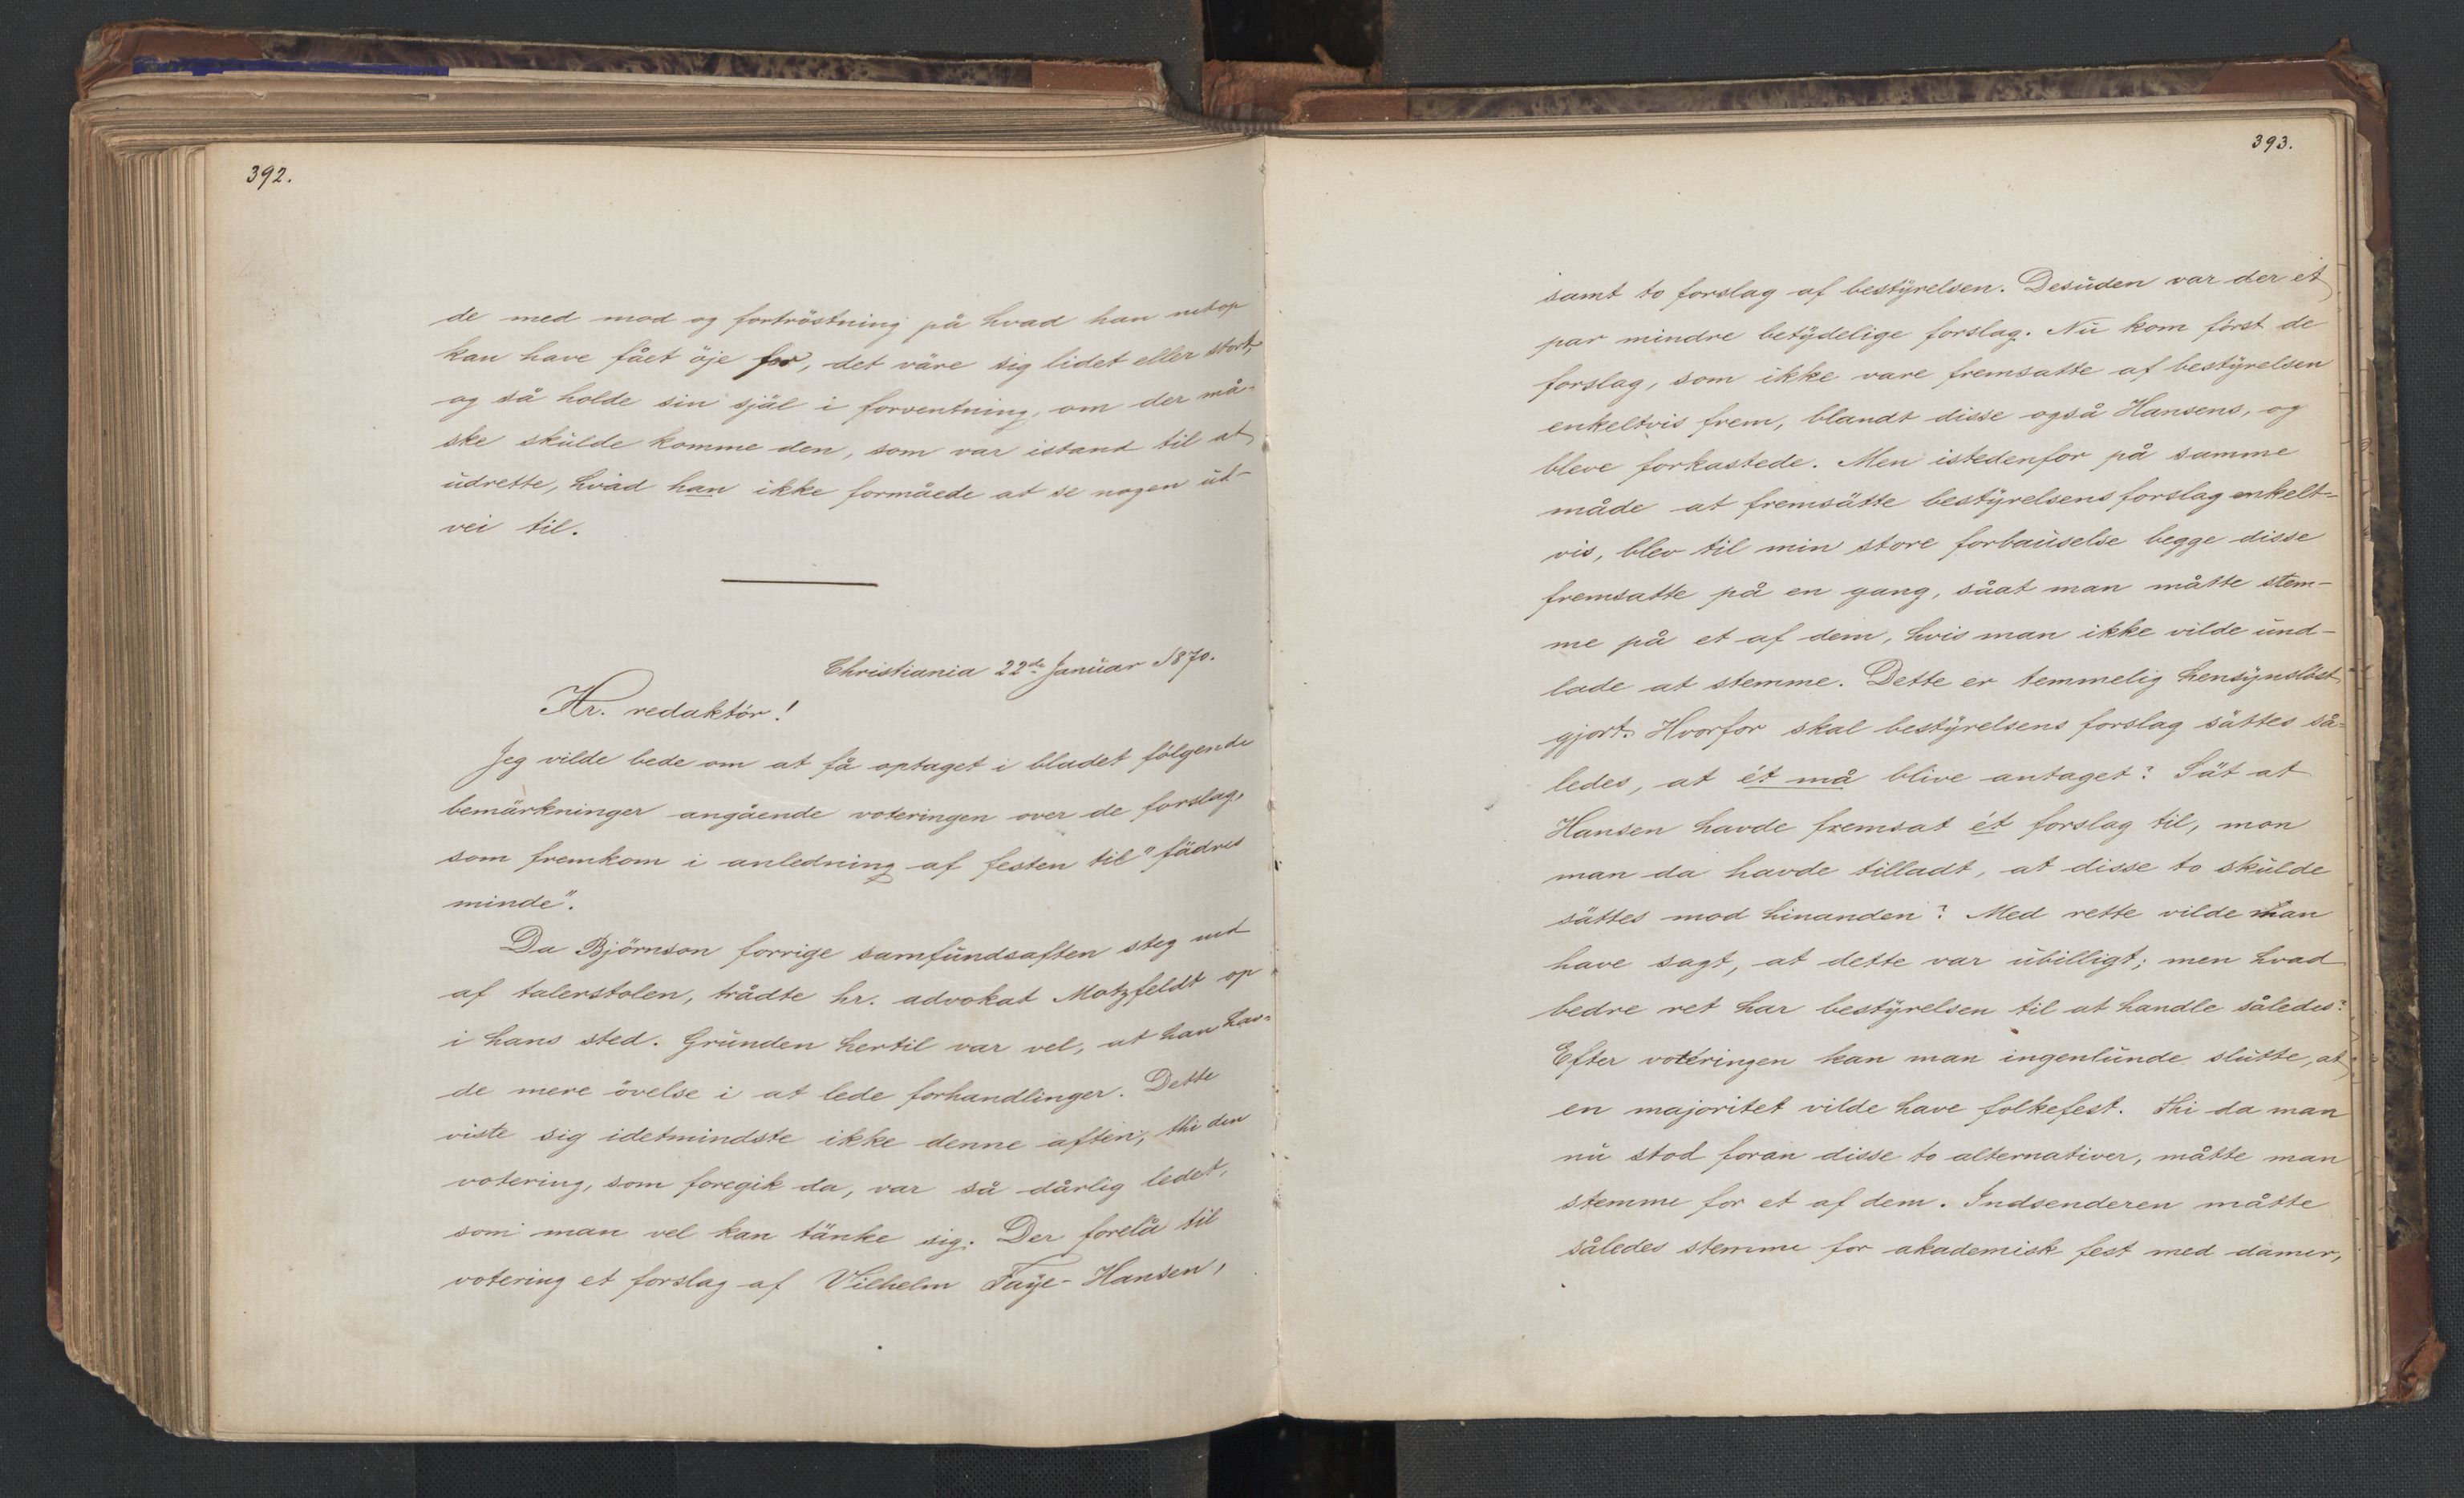 392.
de med mod og fortröstning på hvad han netop
kan have fået öje for, det väre sig lidet eller stort,
og så holde sin själ i forventning, om der må-
ske skulde komme den, som var istand til at
udrette, hvad han ikke formåede at se nogen ut-
vei til.
Christiania 22de Januar 1870.
Hr. redaktör!
Jeg vilde bede om at få optaget i bladet fölgende
bemärkninger angående voteringen over de forslag,
som fremkom i anledning af festen til "fädres
minde".
Da Björnson forrige samfundsaften steg ned
af talerstolen, trådte hr. advokat Motzfeldt op
i hans sted. Grunden hertil var vel, at han hav-
de mere övelse i at lede forhandlinger. Dette
viste sig idetmindste ikke denne aften; thi den
votering, som foregik da, var så dårlig ledet,
som man vel kan tänke sig. Der forelå til
votering et forslag af Vilhelm Faye-Hansen,
393.
samt to forslag af bestyrelsen. Desuden var der et
par mindre betydelige forslag. Nu kom först de
forslag, som ikke vare fremsatte af bestyrelsen
enkeltvis frem, blandt disse også Hansens, og
bleve forkastede. Men istedenfor på samme
måde at fremsätte bestyrelsens forslag enkelt-
vis, blev til min store forbauselse begge disse
fremsatte på en gang, såat man måtte stem-
me på et af dem, hvis man ikke vilde und-
lade at stemme. Dette er temmelig hensynslöst
gjort. Hvorfor skal bestyrelsens forslag sättes så-
ledes, at ét må blive antaget? Sät at
Hansen havde fremsat ét forslag til, mon
man da havde tilladt, at disse to skulde
sättes mod hinanden? Med rette vilde man
have sagt, at dette var ubilligt; men hvad
bedre ret har bestyrelsen til at handle således?
Efter voteringen kan man ingenlunde slutte, at
en majoritet vilde have folkefest. Thi da man
nu stod foran disse to alternativer, måtte man
stemme for et af dem. Indsenderen måtte
således stemme for akademisk fest med damer,